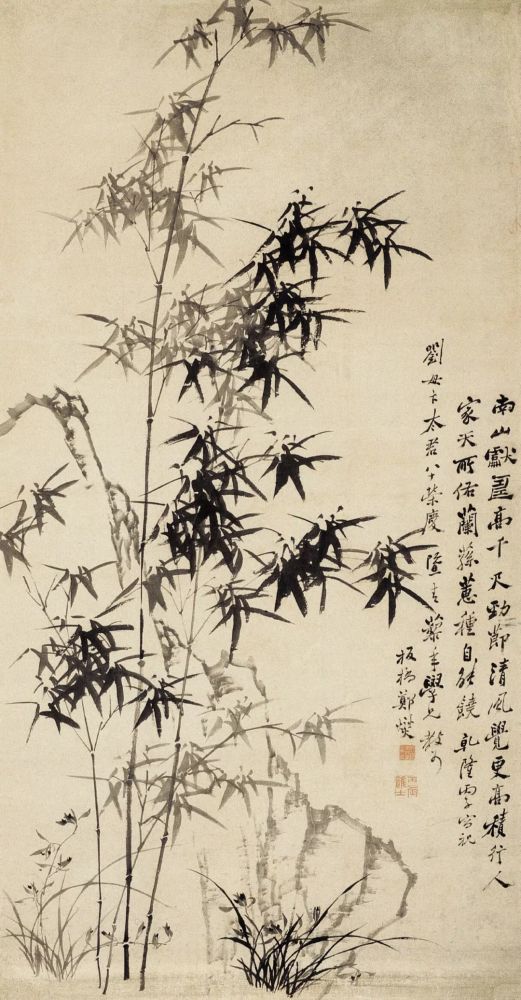 南山獻壽高千尺勁節清風覺更高積行人
家天所佑蘭蓀蕙種自能饒 乾隆丙子寫祝
劉母卞太君八十榮慶 年學兄教
板橋鄭燮
丙辰進士